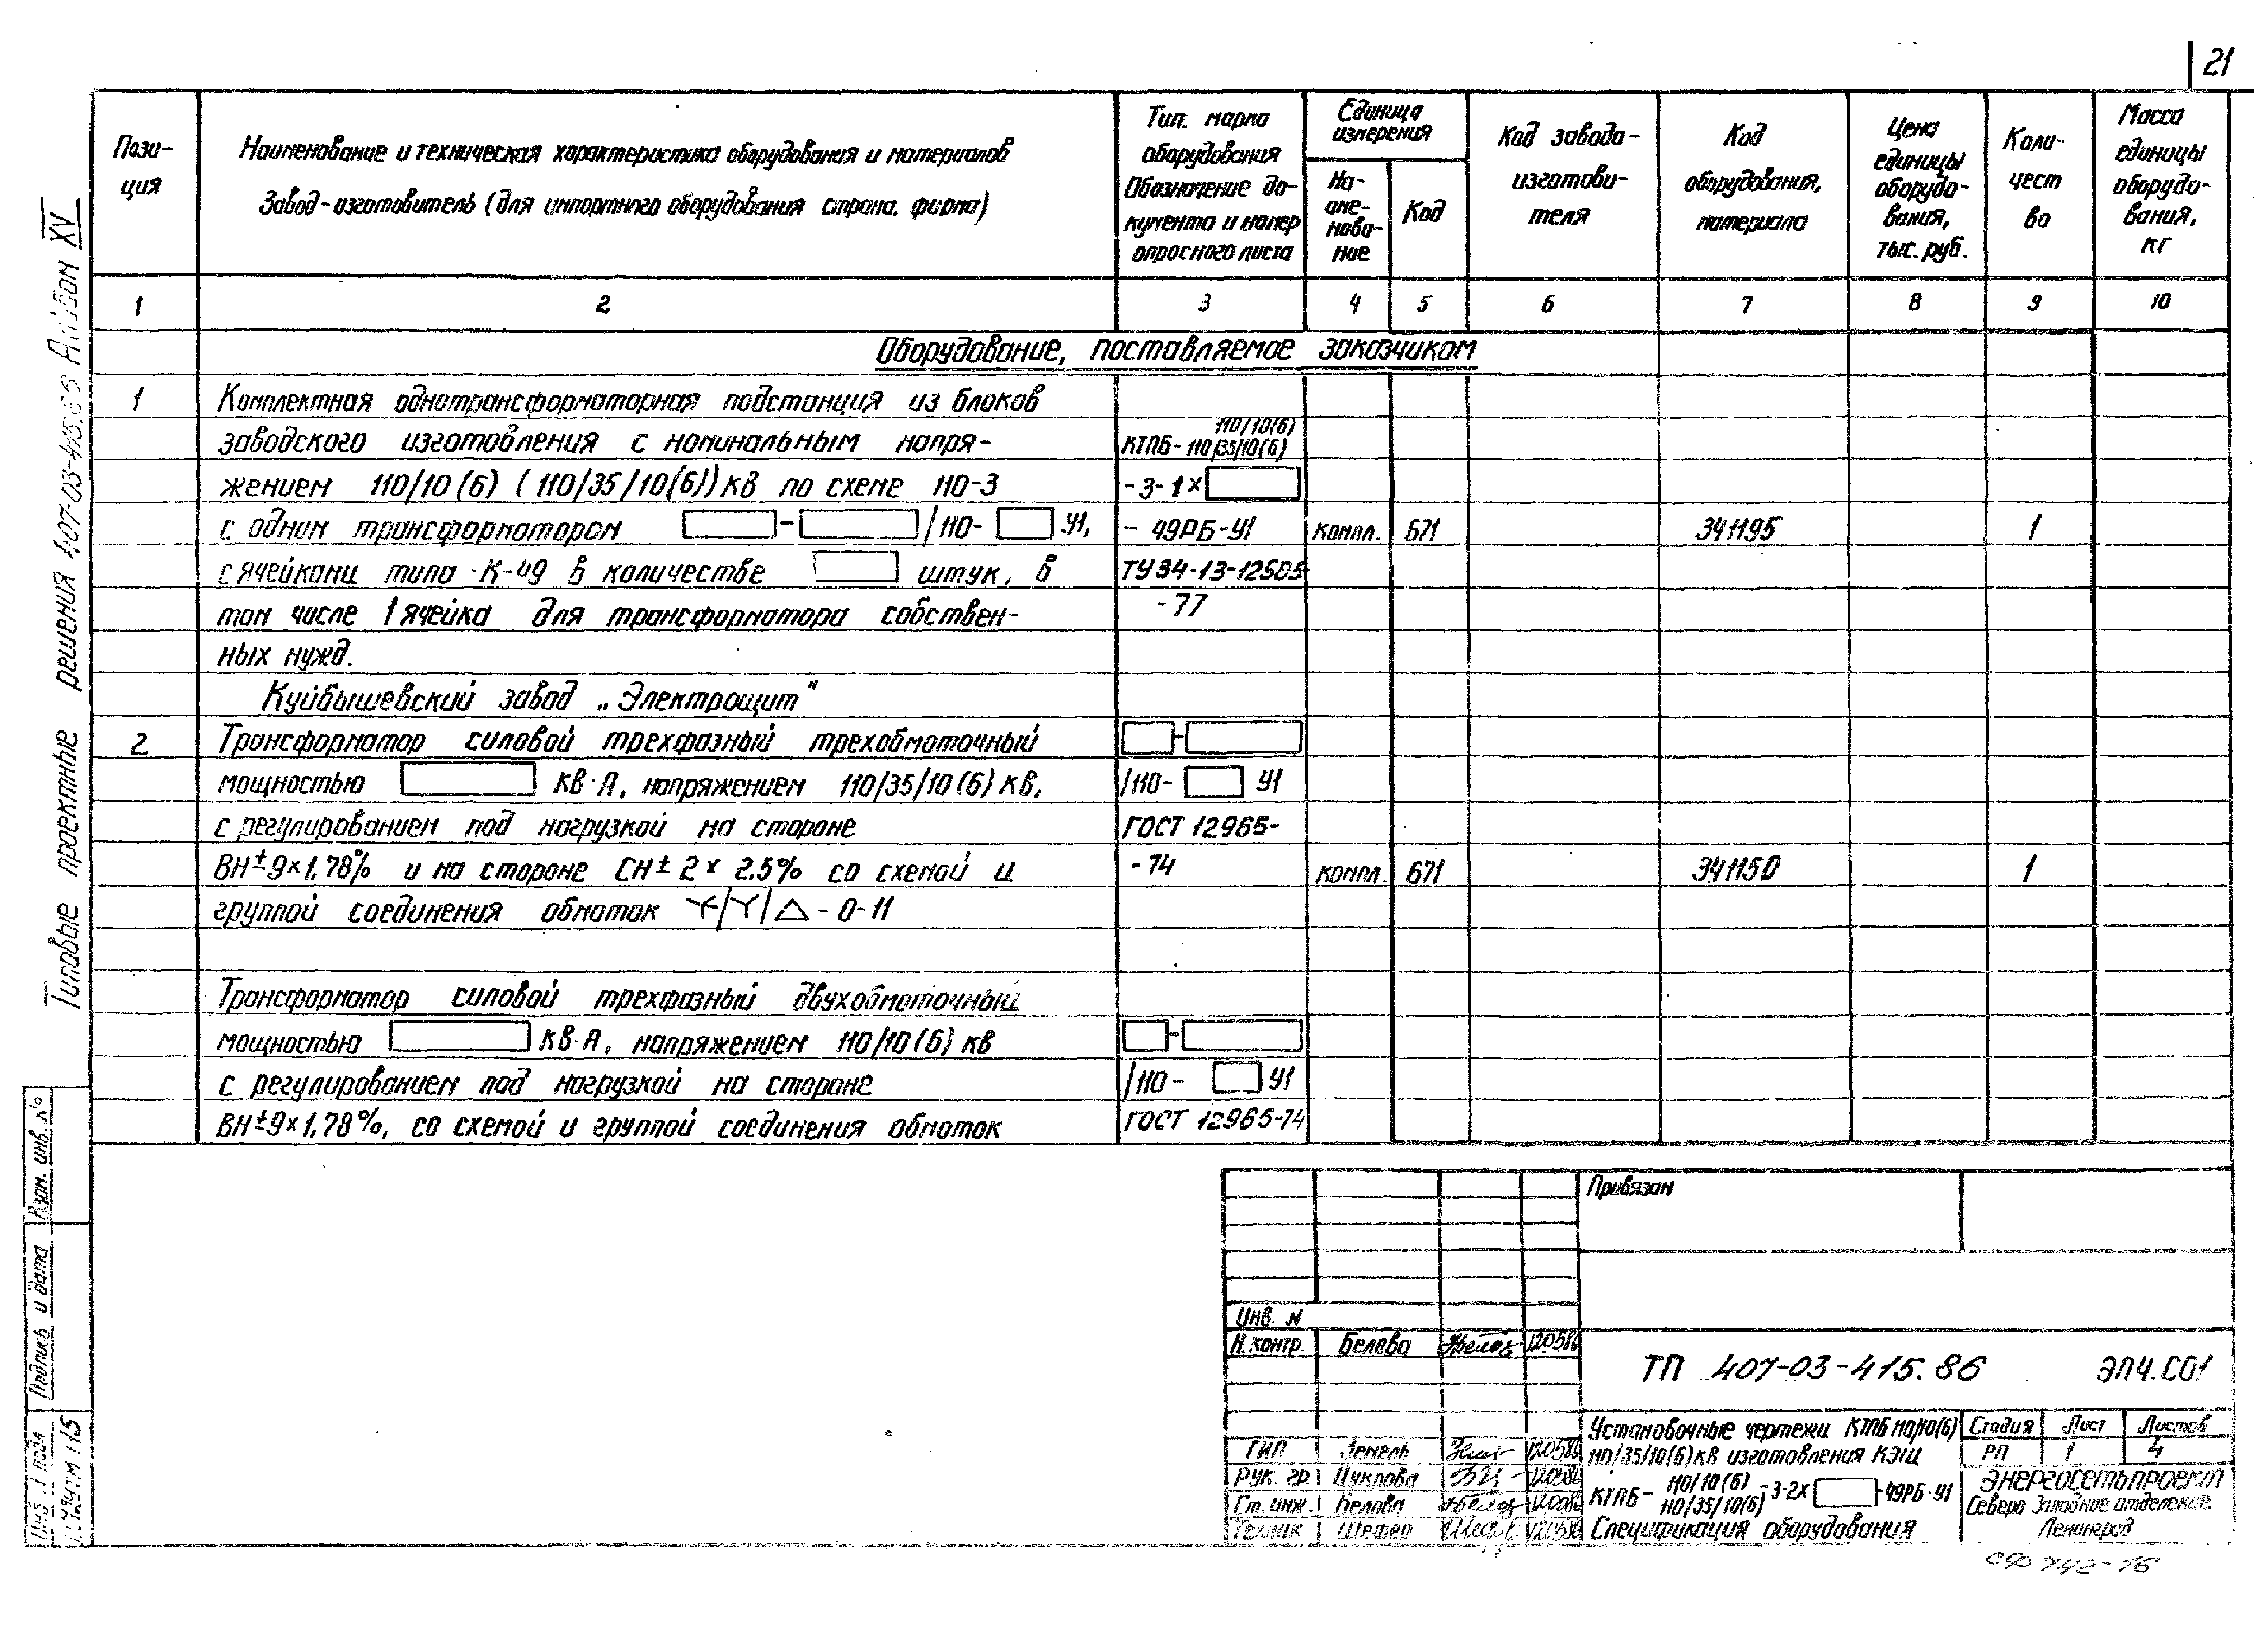 21
Пози-
ция
Наименование и техническая характеристика оборудования и материалов
Завод-изготовитель (для импортного оборудования страна, фирма)
Тип, марка
оборудования
Обозначение до-
кумента и номер
опросного листа
Единица
измерения
На-
име-
нова-
ние
Код
Код завода-
изготови-
теля
Код
оборудования,
материала
Цена
единицы
оборудо-
вания,
тыс. руб.
Коли-
чест
во
Масса
единицы
оборудо-
вания,
кг
1 2 3 4 5 6 7 8 9 10
Оборудование, поставляемое заказчиком
1 Комплектная однотрансформаторная подстанция из блоков
110/10(6)
заводского изготовления с номинальным напря- КТПБ- 110/35/10(6)
жением 110/10(6) (110/35/10(6)) кВ по схеме 110-3 -3-1×
с одним трансформатором - /110- У1, - 49РБ-У1 компл. 671 341195 1
с ячейками типа К-49 в количестве штук, в ТУ34-13-12505-
том числе 1 ячейка для трансформатора собствен- -77
ных нужд.
Куйбышевский завод „Электрощит"
2 Трансформатор силовой трехфазный трехобмоточный -
мощностью кВ·А, напряжением 110/35/10(6) кВ, /110- У1
с регулированием под нагрузкой на стороне ГОСТ 12965-
ВН±9×1,78% и на стороне СН±2×2,5% со схемой и -74 компл. 671 341150 1
группой соединения обмоток Y/Y/△-0-11
Трансформатор силовой трехфазный двухобмоточный
мощностью кВ·А, напряжением 110/10(6) кВ -
с регулированием под нагрузкой на стороне /110- У1
ВН±9×1,78%, со схемой и группой соединения обмоток ГОСТ 12965-74
Типовые проектные решения 407-03-415.86 Альбом XV
Взам. инв. №
Подпись и дата
Инв. № подл.
Привязан
Инв. №
Н. контр. Белова 120586
ТП 407-03-415.86 ЭП4.СО1
Установочные чертежи КТПБ 110/10(6)
110/35/10(6) кВ изготовления КЭЩ
КТПБ- 110/10(6) 110/35/10(6) -3-2× -49РБ-У1
Спецификация оборудования
Стадия Лист Листов
РП 1 4
ГИП Земель 120586
Рук. гр. Цукрова 120586
Ст. инж. Белова 120586
Техник Шефер 120586
Энергосетьпроект
Северо Западное отделение
Ленинград